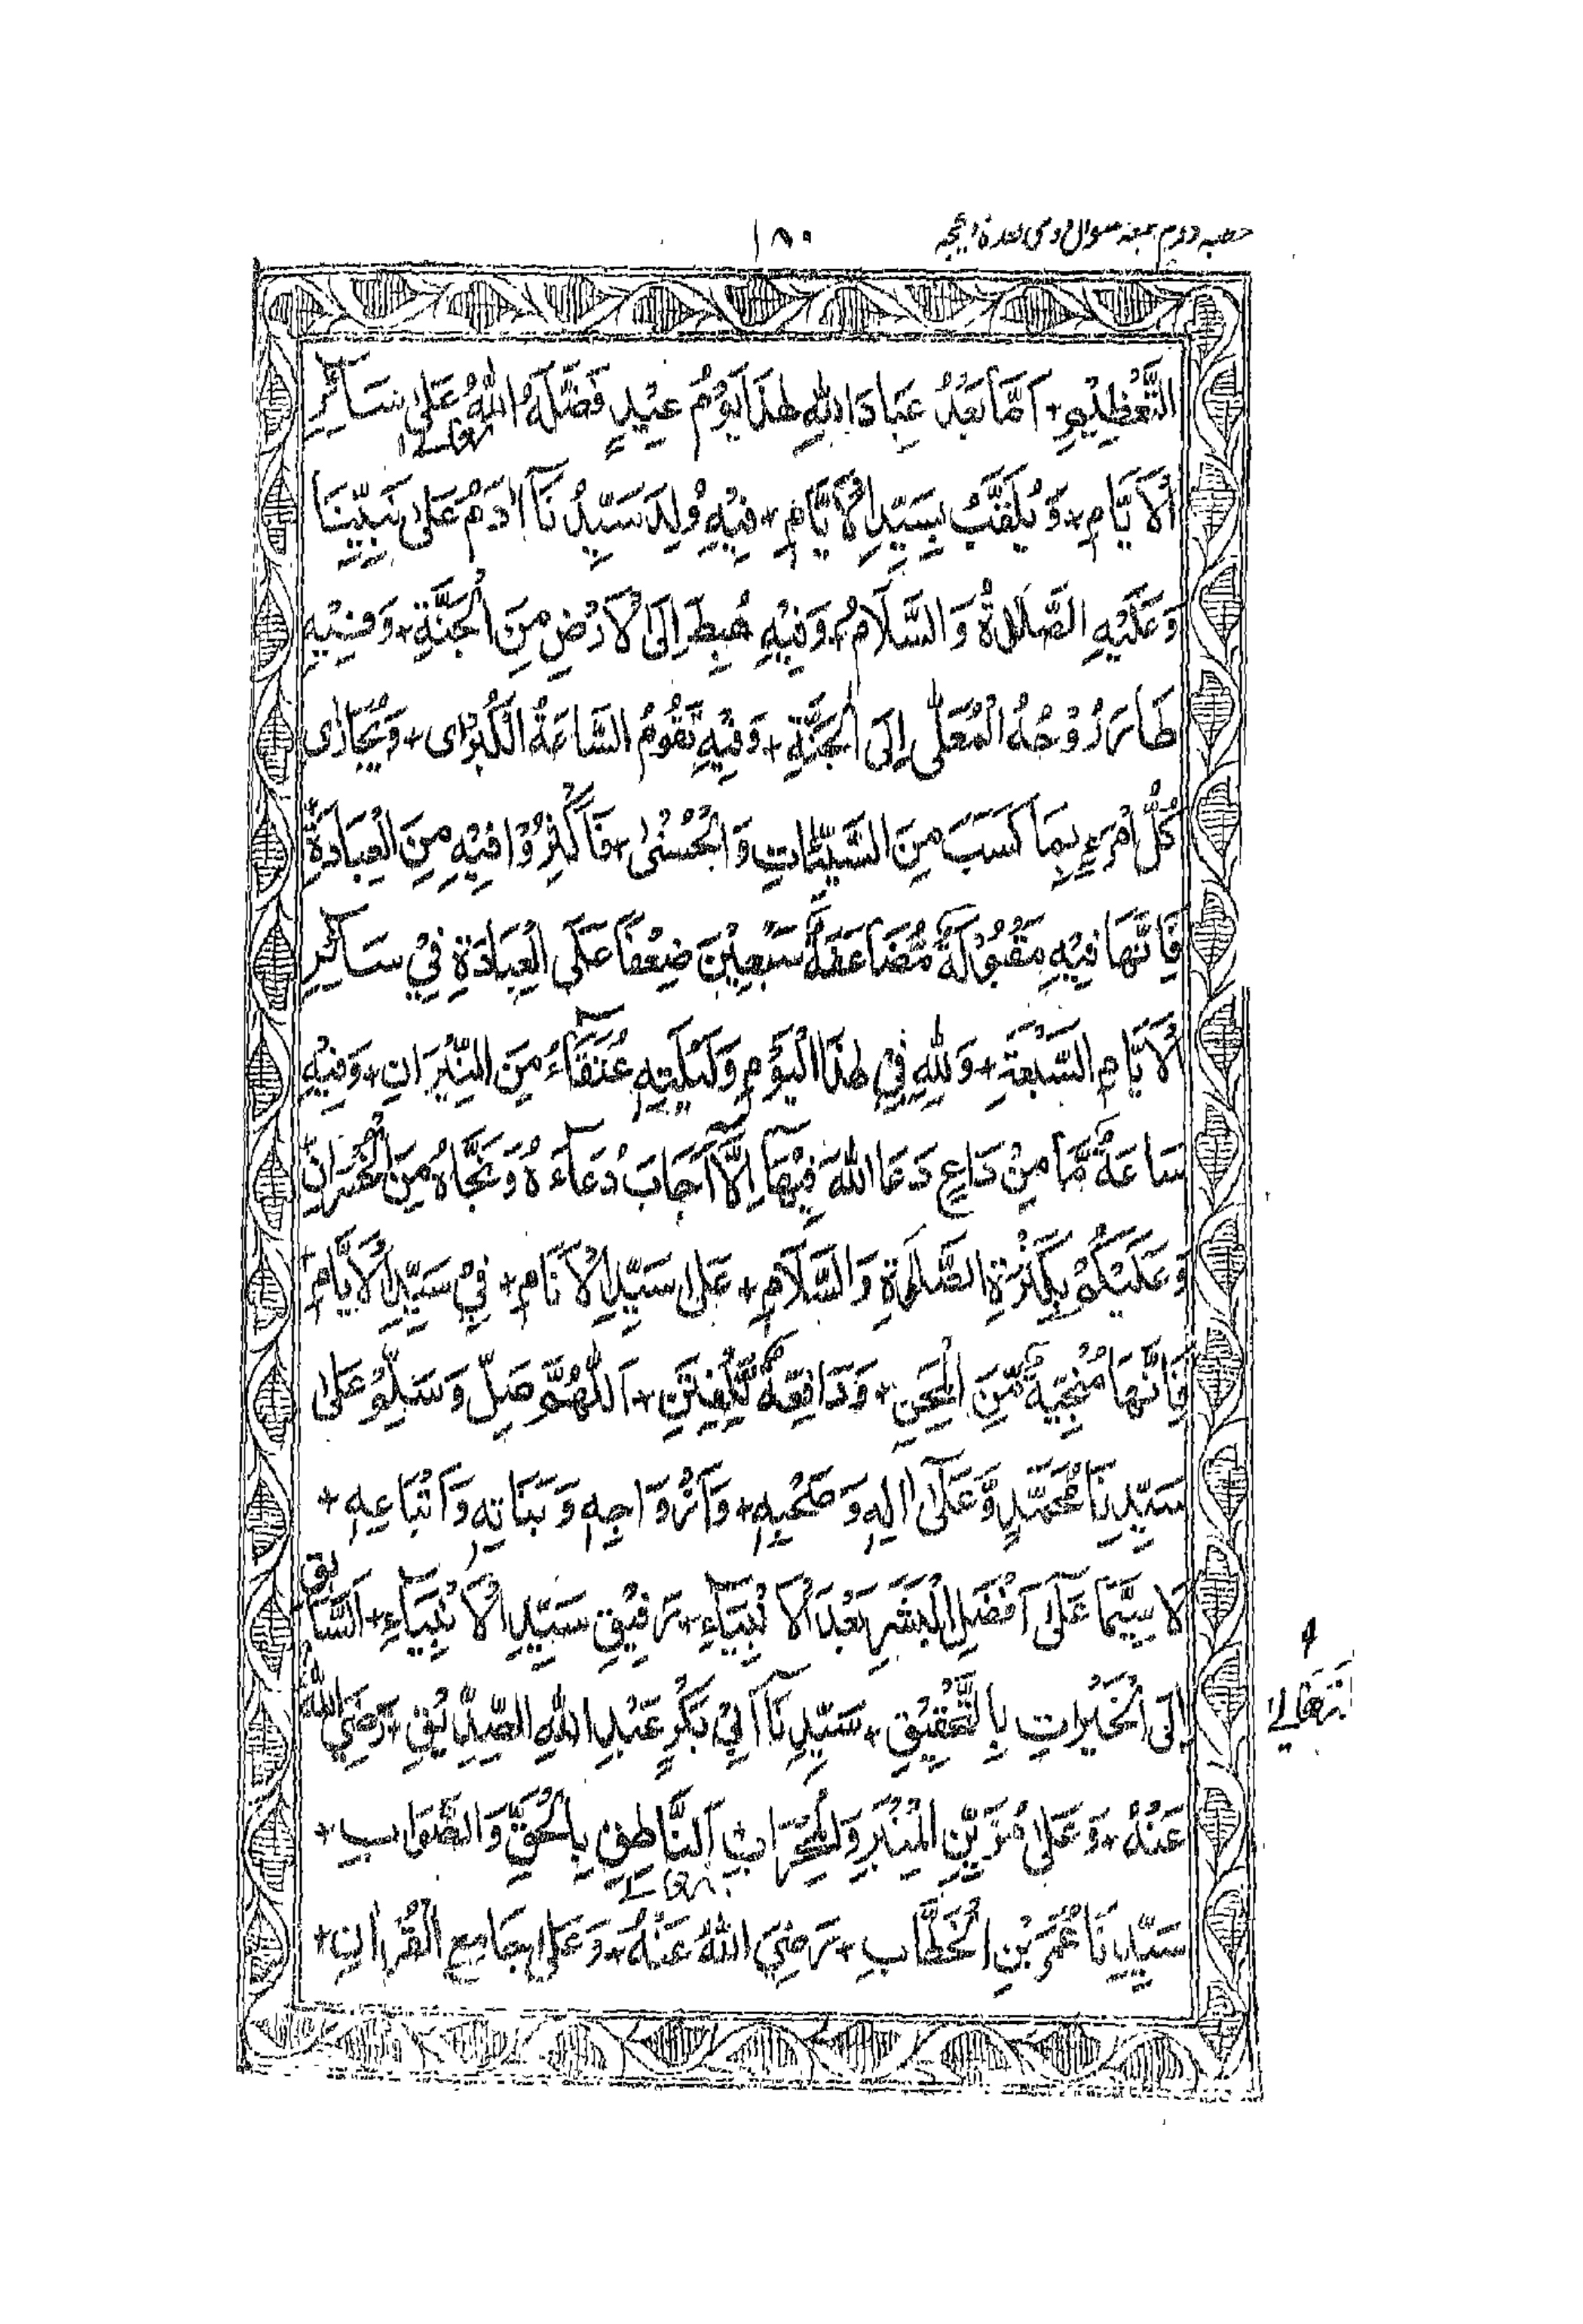 خطبہ دوم جمعہ شوال وذی قعدہ وذیحجہ
۱۸۰
التَّعْظِيْمِ + اَمَّا بَعْدُ عِبَادَ اللهِ هٰذَا يَوْمُ عِيْدٍ فَضَّلَهُ اللهُ تعالے عَلٰى سَآئِرِ
الْاَيَّامِ + وَيُلَقَّبُ بِسَيِّدِ الْاَيَّامِ + فِيْهِ وُلِدَ سَيِّدُنَآ اٰدَمُ عَلٰى نَبِيِّنَا
وَعَلَيْهِ الصَّلٰوةُ وَالسَّلَامُ + وَفِيْهِ هُبِطَ اِلَى الْاَرْضِ مِنَ الْجَنَّةِ + وَفِيْهِ
طَارَ رُوْحُهُ الْمُعَلّٰى اِلَى الْجَنَّةِ + وَفِيْهِ تَقُوْمُ السَّاعَةُ الْكُبْرٰى + وَيُجَازٰى
كُلُّ امْرَءٍ بِمَا كَسَبَ مِنَ السَّيِّئَاتِ وَالْحُسْنٰى + فَاَكْثِرُوْا فِيْهِ مِنَ الْعِبَادَةِ +
فَاِنَّهَا فِيْهِ مَقْبُوْلَةٌ مُّضَاعَفَةٌ سَبْعِيْنَ ضِعْفًا عَلَى الْعِبَادَةِ فِيْ سَآئِرِ
الْاَيَّامِ السَّبْعَةِ + وَلِلّٰهِ فِيْ هٰذَا الْيَوْمِ وَلَيْلَتِهٖ عُتَقَآءُ مِنَ النِّيْرَانِ + وَفِيْهِ
سَاعَةٌ مَّا مِنْ دَاعٍ دَعَا اللهَ فِيْهَآ اِلَّآ اَجَابَ دُعَآءَهٗ وَنَجَّاهُ مِنَ الْخُسْرَانِ +
وَعَلَيْكُمْ بِكَثْرَةِ الصَّلٰوةِ وَالسَّلَامِ + عَلٰى سَيِّدِ الْاَنَامِ + فِيْ سَيِّدِ الْاَيَّامِ +
فَاِنَّهَا مُنْجِيَةٌ مِّنَ الْمِحَنِ + وَدَافِعَةٌ لِّلْفِتَنِ + اَللّٰهُمَّ صَلِّ وَسَلِّمْ عَلٰى
سَيِّدِنَا مُحَمَّدٍ وَّعَلٰٓى اٰلِهٖ وَصَحْبِهٖ + وَاَزْوَاجِهٖ وَبَنَاتِهٖ وَاَتْبَاعِهٖ +
لَا سِيَّمَا عَلٰٓى اَفْضَلِ الْبَشَرِ بَعْدَ الْاَنْبِيَآءِ + رَفِيْقِ سَيِّدِ الْاَنْبِيَآءِ + اَلسَّابِقِ
اِلَى الْخَيْرَاتِ بِالتَّحْقِيْقِ + سَيِّدِنَآ اَبِيْ بَكْرٍ عَبْدِ اللهِ الصِّدِّيْقِ + رَضِيَ اللهُ
تَعَالٰے
عَنْهُ + وَعَلٰى مُزَيِّنِ الْمِنْبَرِ وَالْمِحْرَابِ اَلنَّاطِقِ بِالْحَقِّ وَالصَّوَابِ +
سَيِّدِنَا عُمَرَ بْنِ الْخَطَّابِ + رَضِيَ اللهُ تعالے عَنْهُ + وَعَلٰى جَامِعِ الْقُرْاٰنِ +